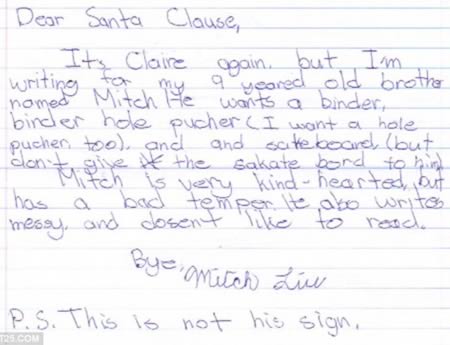 Dear Santa Clause,
Its Claire again. but I'm
writing for my 9 yeared old brothe
named Mitch He wants a binder,
binder hole pucher (I want a hole
pucher, too), and and sateboard, (but
don't give the sakate bord to him)
Mitch is very kind-hearted, but
has a bad temper. He also writes
messy, and dosent like to read.
Bye,
Mitch Liu
P.S. This is not his sign.
T25.COM